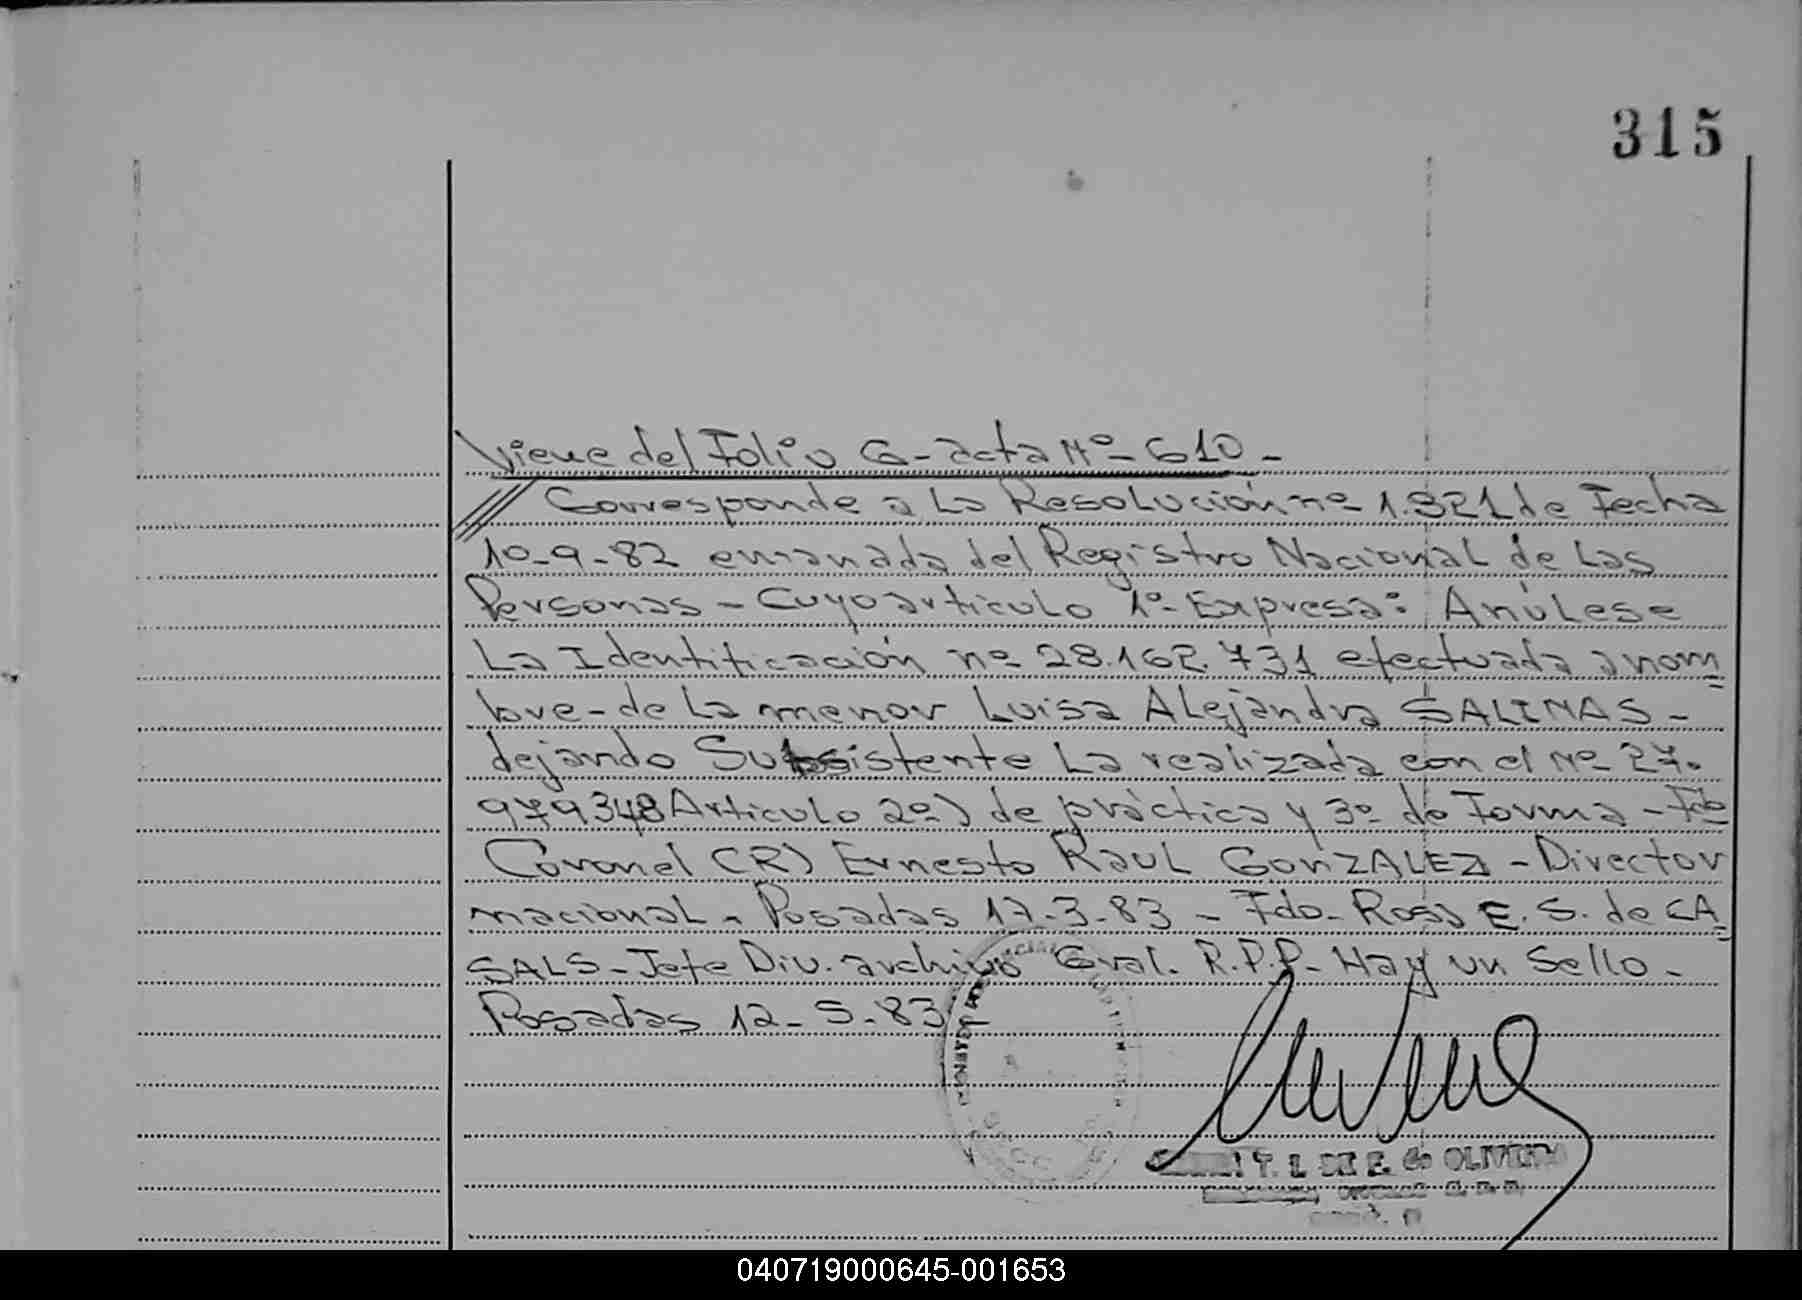 315
Viene del Folio 6- acta Nº- 610-
Corresponde a La Resolución nº 1.321 de Fecha
10-9-82 emanada del Registro Nacional de Las
Personas - Cuyo articulo 1º- Expresa: Anúlese
La Identificación nº 28.162.731 efectuada a nom
bre - de La menor Luisa Alejandra SALINAS -
dejando Subsistente La realizada con el nº 27.
979348 Articulo 2º) de práctica y 3º de Forma - Fdo
Coronel (R) Ernesto Raul GonZALEZ - Director
nacional - Posadas 17-3-83 - Fdo- Rosa E. S. de CA
SALS - Jefe Div. archivo Gral. R.P.P- Hay un Sello -
Posadas 12-5-83-
T. L. DE E. de OLIVEIRA
040719000645-001653